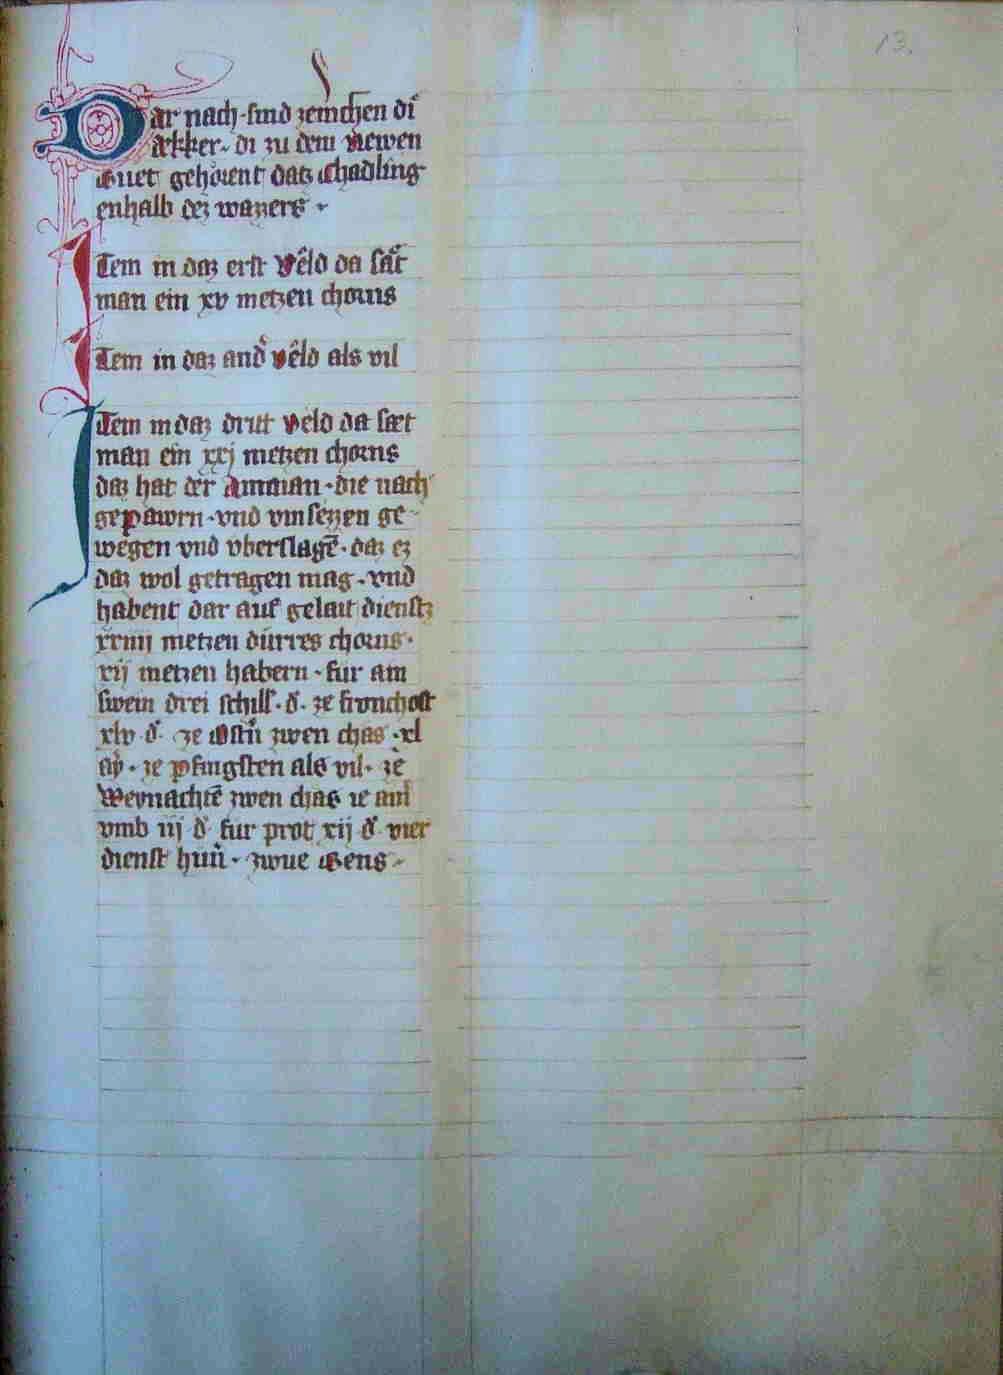 13.
Dar nach · sind zemerchen di
ækker · di zu dem Newen
Guet gehorent datz Chadling
enhalb dez wazzers ·
Item in daz erst Veld da sæt
man ein xv metzen chorns
Item in daz and̾ veld als vil
Item in daz dritt Veld da sæt
man ein xxj metzen chorns
daz hat der Amman · die nach
gepawrn · vnd vmsezzen ge
wegen vnd vberslagē · daz ez
daz wol getragen mag · vnd
habent dar auf gelait dienstz
xxiiij metzen dürres chorns ·
xij metzen habern · fur am
swein drei schill · d̾ · ze fronchost
xlv · d̾ · ze Ostn̾ zwen chæs · xl
ay̾ · ze phingsten als vil · ze
Weynachtē zwen chæs ie ain̾
vmb iij d̾ fur prot xij d̾ vier
dienst hun̾ · zwue Gens ·